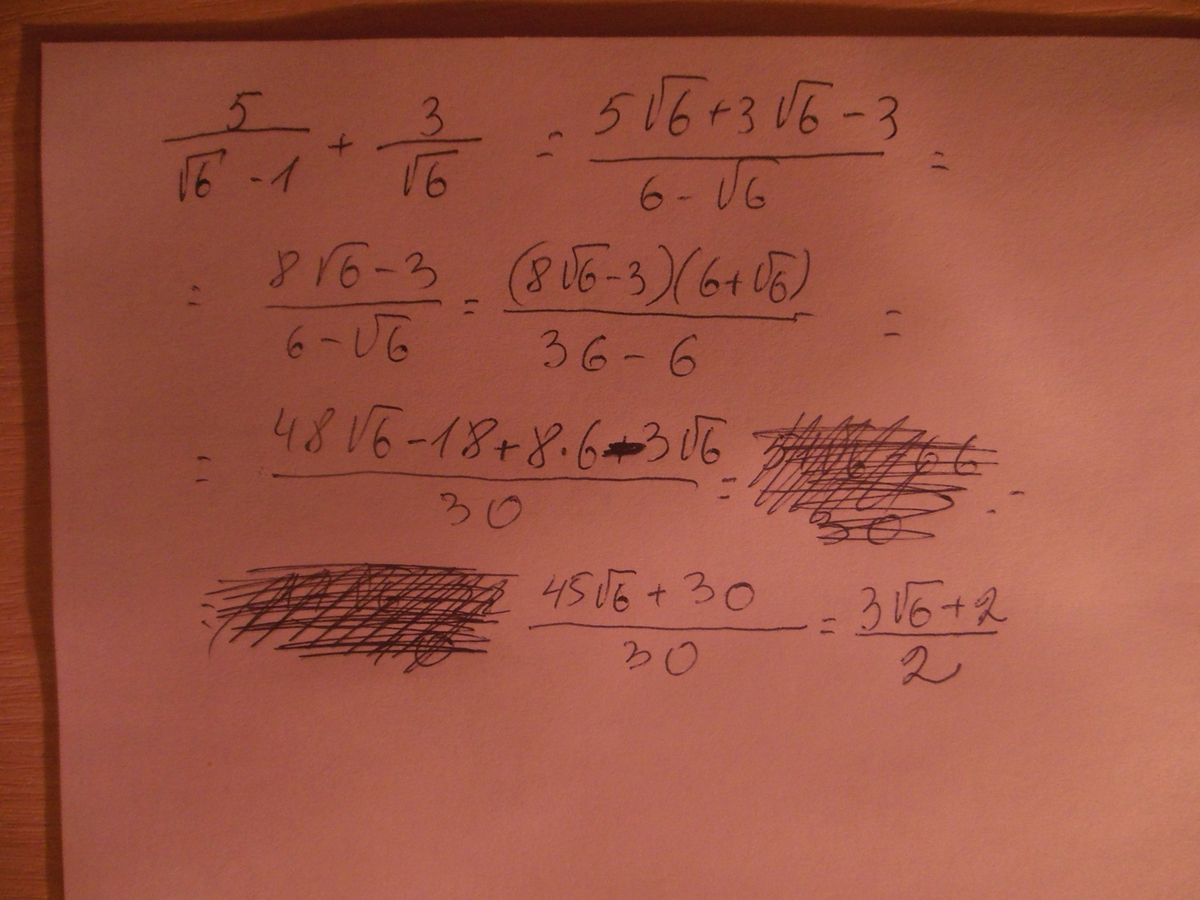 5/(√6 - 1) + 3/√6 = (5√6 + 3√6 - 3)/(6 - √6) =
= (8√6 - 3)/(6 - √6) = (8√6 - 3)(6 + √6)/(36 - 6) =
= (48√6 - 18 + 8·6 - 3√6)/30 = =
= (45√6 + 30)/30 = (3√6 + 2)/2